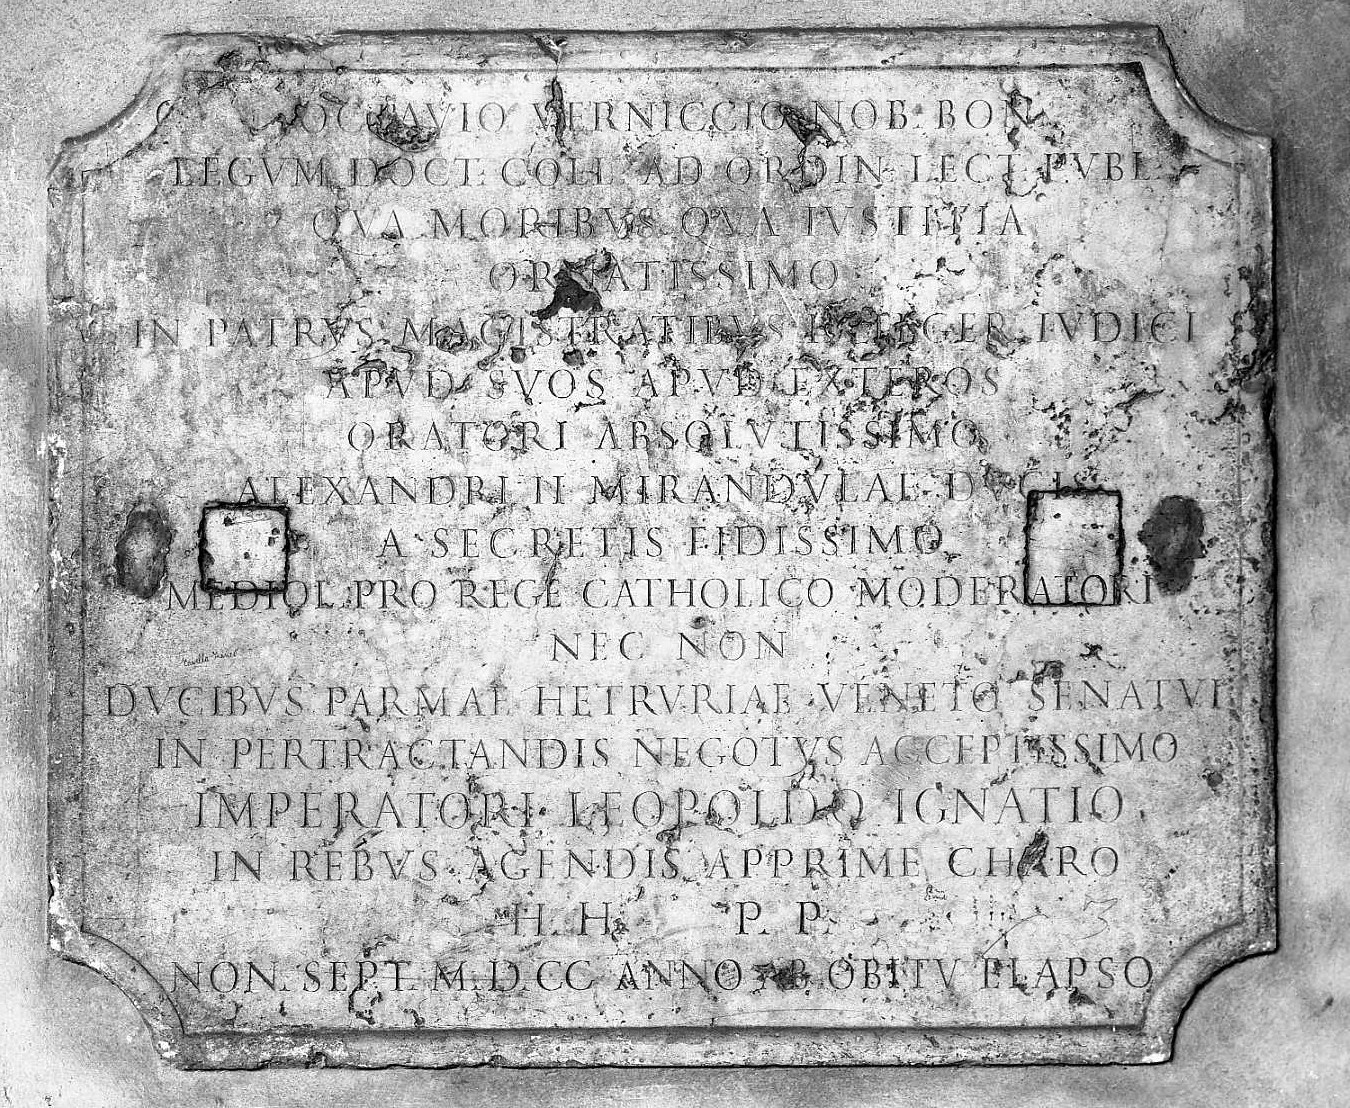 OCTAVIO VERNICCIO NOB. BON
LEGVM DOCT. COLL. AD ORDIN. LECT. PVBL.
QVA MORIBVS QVA IVSTITIA
ORNATISSIMO
IN PATRYS MAGISTRATIBVS INTEGER. IVDICI
APVD SVOS APVD EXTEROS
ORATORI ABSOLVTISSIMO
ALEXANDRI II MIRANDVLAE DVCIS
A SECRETIS FIDISSIMO
MEDIOL. PRO REGE CATHOLICO MODERATORI
NEC NON
DVCIBVS PARMAE HETRVRIAE VENETO SENATVI
IN PERTRACTANDIS NEGOTYS ACCEPTISSIMO
IMPERATORI LEOPOLDO IGNATIO
IN REBVS AGENDIS APPRIME CHARO
H. H. P. P.
NON. SEPT. M.D.CC ANNO AB OBITV ELAPSO